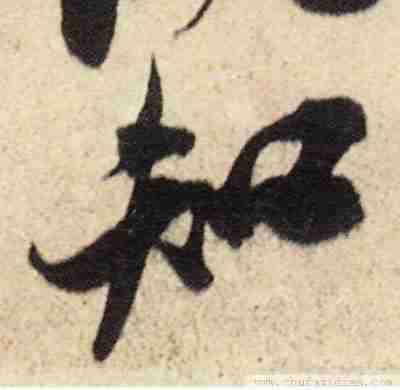 知
www.shufazidian.com